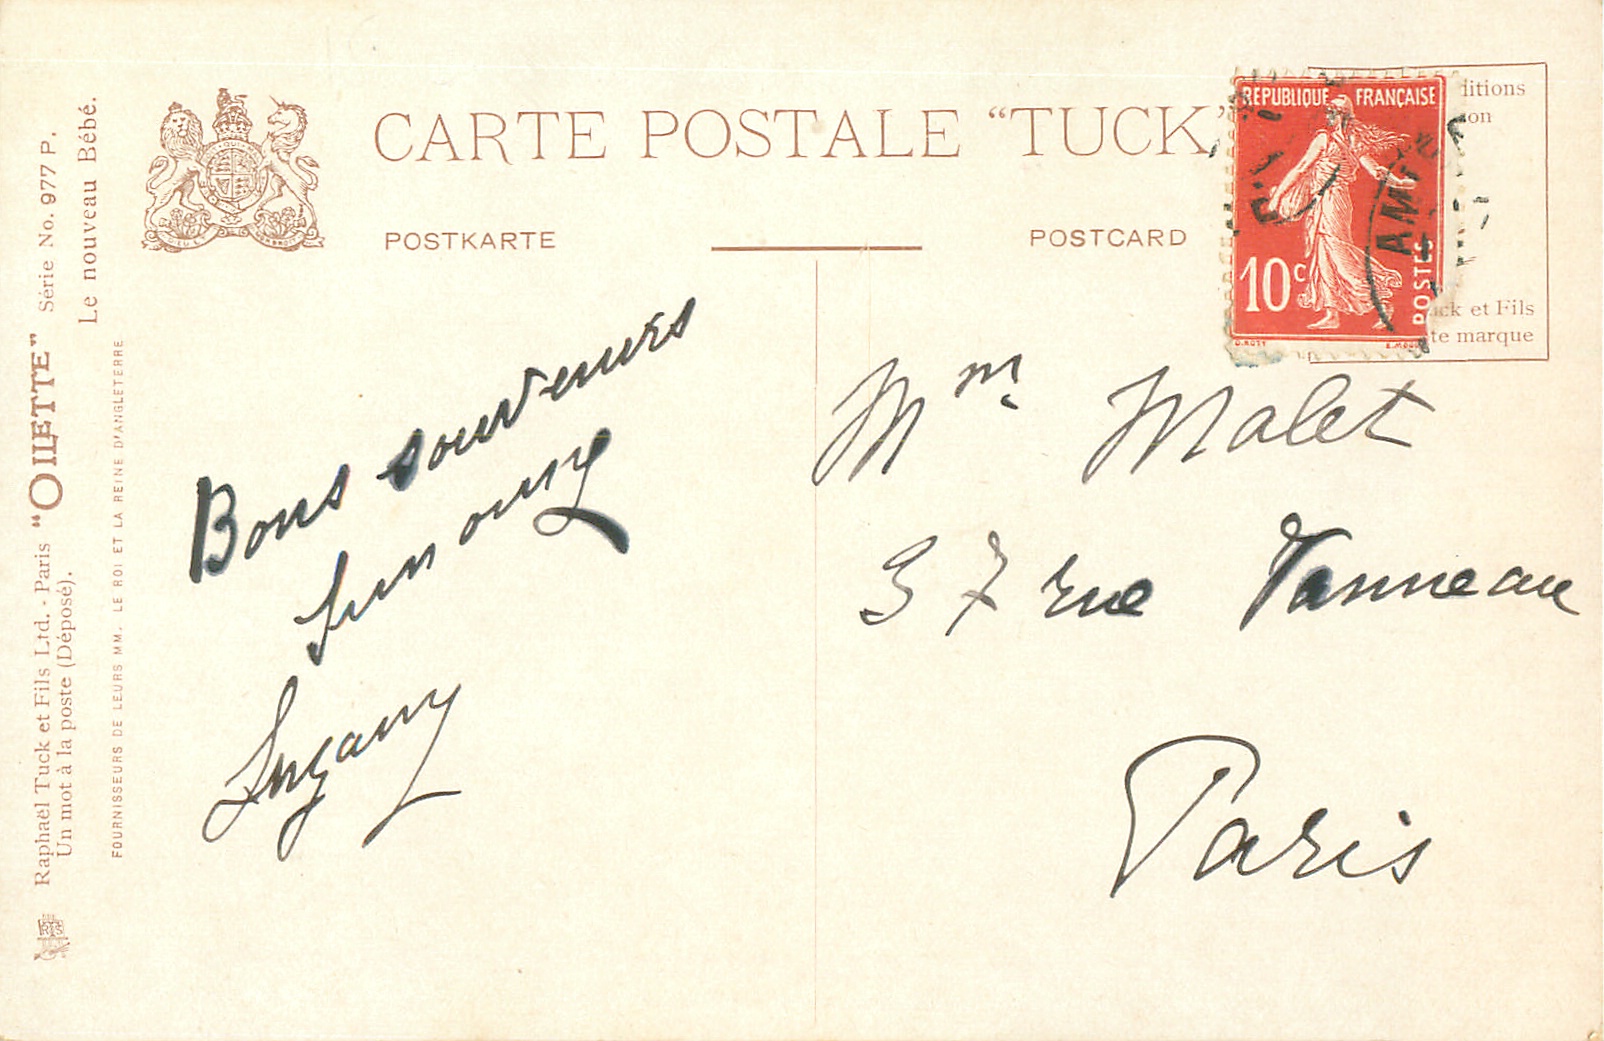 CARTE POSTALE "TUCK"
POSTKARTE
POSTCARD
Raphaël Tuck et Fils Ltd. - Paris "OILETTE" Série No. 977 P.
Un mot à la poste (Déposé).
Le nouveau Bébé.
FOURNISSEURS DE LEURS MM. LE ROI ET LA REINE D'ANGLETERRE
REPUBLIQUE FRANÇAISE
10c
POSTES
O. ROTY
ditions
on
uck et Fils
te marque
Bons souvenirs
Mme Malet
37 rue Vanneau
Paris